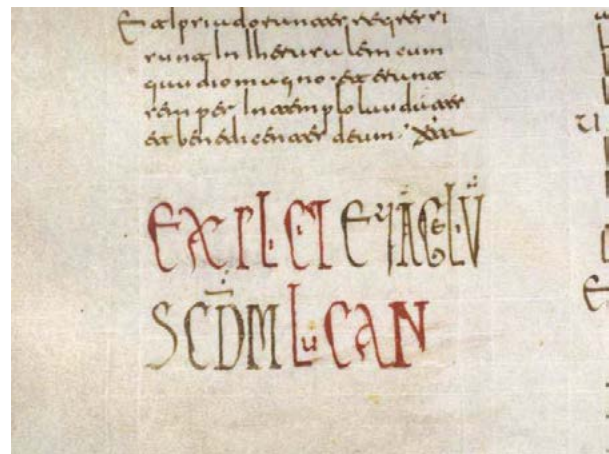 Et ipsi adorantes regressi
sunt In Iherusalem cum
gaudio magno · et erant
semper In templo laudantes
et benedicentes deum ·
EXPLCIT EUĀGLŪ
SCD̄M LuCAN